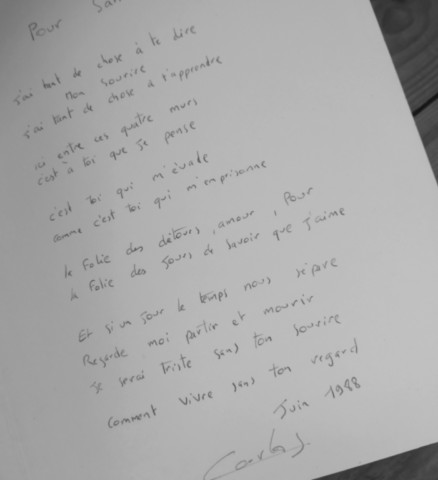 Pour San
j'ai tant de chose à te dire
mon sourire
j'ai tant de chose à t'apprendre
ici entre ces quatre murs
c'est à toi que je pense
c'est toi qui m'évade
comme c'est toi qui m'emprisonne
la folie des détours, amour, pour
la folie des jours de savoir que j'aime
Et si un jour le temps nous sépare
Regarde moi partir et mourir
Je serai triste sans ton sourire
comment vivre sans ton regard
Juin 1988
Carlos